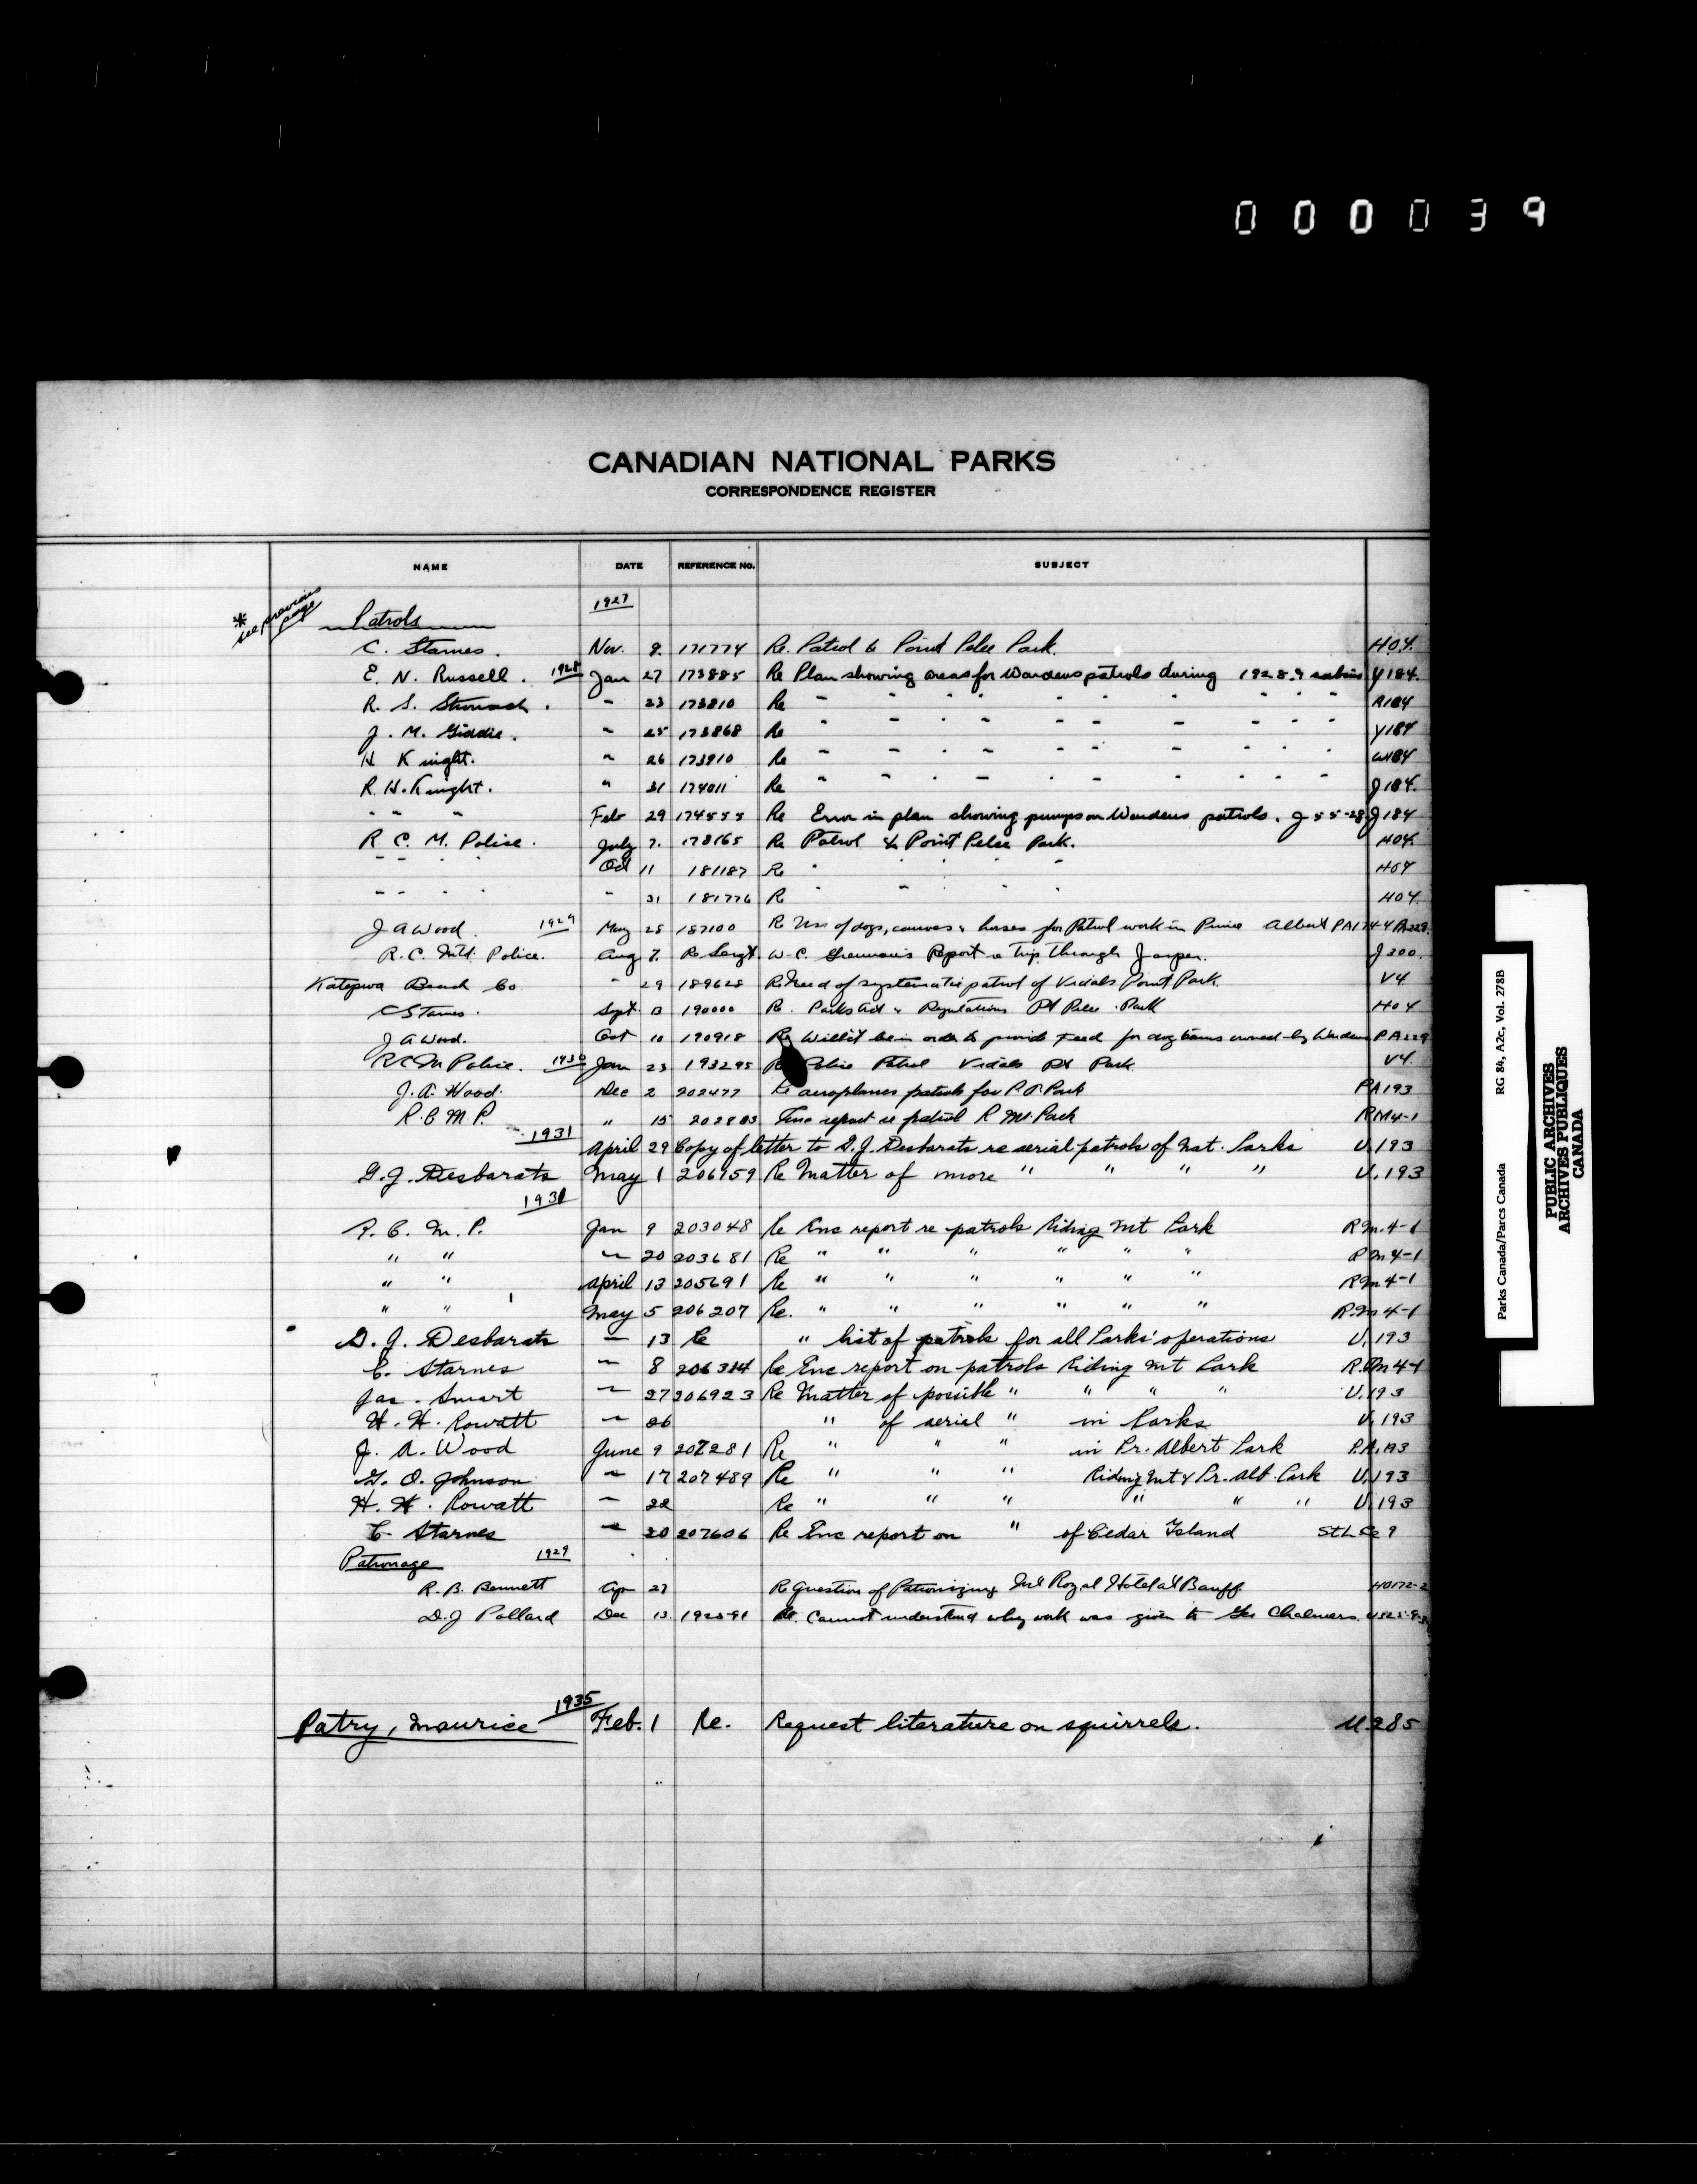 000039
CANADIAN NATIONAL PARKS
CORRESPONDENCE REGISTER
NAME DATE REFERENCE No. SUBJECT
* see previous page
1927
Patrols
C. Starnes. Nov. 8. 171774 Re. Patrol to Point Pelee Park. H04.
E. N. Russell. 1928 Jan 27 173885 Re Plan showing areas for Wardens patrols during 1928-9 Y184.
R. S. . " 23 173810 Re " " " " " " " " R184
J. M. Giddie. " 25 173868 Re " " " " " " " " Y184
H Knight. " 26 173910 Re " " " " " " " " W184
R. H. Knight. " 31 174011 Re " " " " " " " " J184.
" " " Feb 29 174555 Re Error in plan showing pumps on Wardens patrols. J55-28 J184
R. C. M. Police. July 7. 178165 Re Patrol to Point Pelee Park. H04.
" " " " Oct 11 181187 Re " " " " H04
" " " " " 31 181776 R " " " " H04.
J A Wood. 1929 May 25 187100 R Use of dogs, canoes & horses for Patrol work in Prince Albert PA174-4 PA229.
R. C. Mtd. Police. Aug 7. Re Sergt. W. C. Report a Trip through Jasper. J200.
Katepwa Beach Co " 29 189628 R Need of systematic patrol of Vidals Point Park. V4
C Starnes. Sept. 13 190000 Re. Parks Act & Regulations Pt Pelee Park H04
J A Wood. Oct 10 190918 Re Will it be in order to provide feed for dog teams owned by Wardens PA229
R C M Police. 1930 Jan 23 193295 Re Police Patrol Vidals Pt Park V4.
J. A. Wood. Dec 2 202477 Re aeroplanes patrols for P A Park PA193
R. C. M. P. " 15 202803 Enc report re patrol R Mt. Park RM4-1
1931 April 29 Copy of letter to G. J. Desbarats re aerial patrols of Nat. Parks U.193
G. J. Desbarats May 1 206159 Re Matter of more " " " " U.193
1931
R. C. M. P. Jan 9 203048 Re Enc report re patrols Riding Mt Park R.M.4-1
" " " 20 203681 Re " " " " " " R.M4-1
" " April 13 205691 Re " " " " " " R.M4-1
" " May 5 206207 Re. " " " " " " R.M4-1
G. J. Desbarats " 13 Re " list of patrols for all Parks' operations U.193
C. Starnes " 8 206314 Re Enc report on patrols Riding Mt Park R.M4-1
Jas. Smart " 27 206923 Re Matter of possible " " " " U.193
H. H. Rowatt " 26 " of aerial " in Parks U.193
J. A. Wood June 9 207281 Re " " " in Pr. Albert Park P.A.193
G. O. Johnson " 17 207489 Re " " " Riding Mt & Pr. Alb. Park U.193
H. H. Rowatt " 22 Re " " " " " " U.193
C. Starnes " 20 207606 Re Enc report on " of Cedar Island St L Ce 9
Patronage 1929
R. B. Bennett Apr 27 Re Question of Patronizing Mt Royal Hotel at Banff H0172-2
D. J Pollard Dec 13 192591 Re. Cannot understand why work was given to Geo Chalmers.
Patry, Maurice 1935 Feb. 1 Re. Request literature on squirrels. U.285
Parks Canada/Parcs Canada RG 84, A2c, Vol. 278B
PUBLIC ARCHIVES
ARCHIVES PUBLIQUES
CANADA